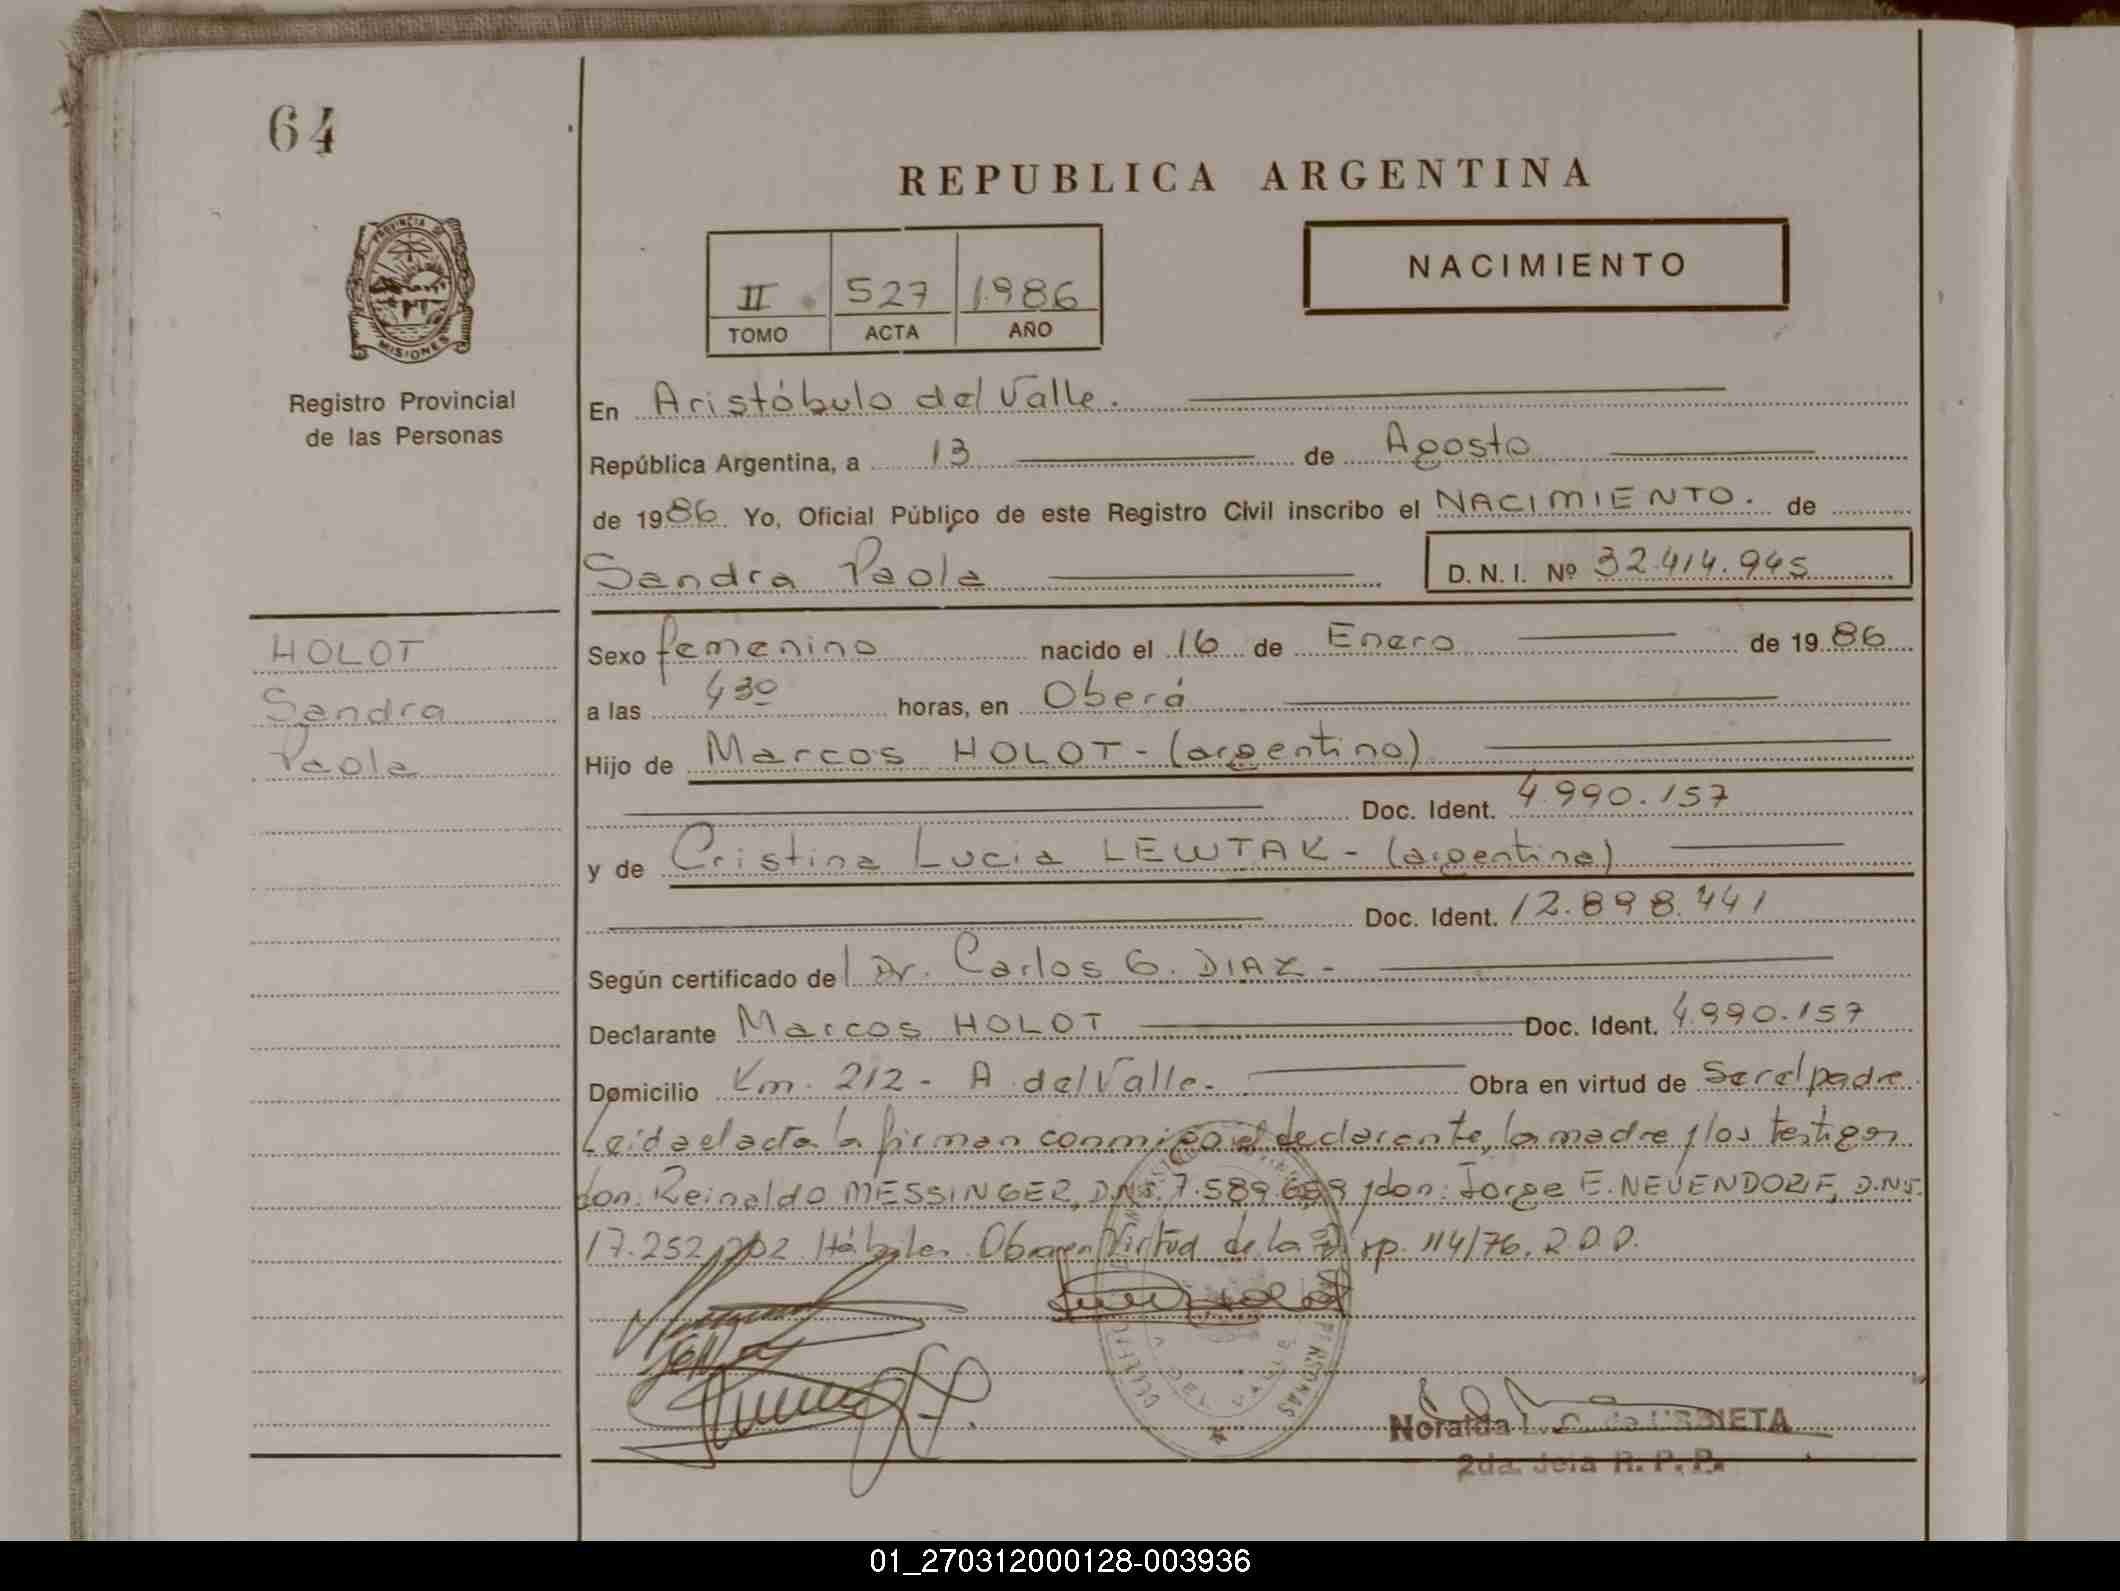 64
REPUBLICA ARGENTINA
PROVINCIA DE
MISIONES
Registro Provincial
de las Personas
II 527 1.986
TOMO ACTA AÑO
NACIMIENTO
En Aristóbulo del Valle.
República Argentina, a 13 de Agosto
de 1986. Yo, Oficial Público de este Registro Civil inscribo el NACIMIENTO. de
Sandra Paola D.N.I. Nº 32.414.945
HOLOT
Sandra
Paola
Sexo femenino nacido el 16 de Enero de 1986
a las 4 30 horas, en Oberá
Hijo de Marcos HOLOT - (argentino)
Doc. Ident. 4.990.157
y de Cristina Lucia LEWTAK - (argentina)
Doc. Ident. 12.898.441
Según certificado del Dr. Carlos G. DIAZ -
Declarante Marcos HOLOT Doc. Ident. 4.990.157
Domicilio Km. 212 - A. del Valle. - Obra en virtud de Ser el padre
Leida el acta la firman conmigo el declarante, la madre y los testigos
don: Reinaldo MESSINGER, D.N.I. 7.589.669 y don: Jorge E. NEUENDORF, D.N.I.
17.252.202 Hábiles. Obra en Virtud de la Disp. 114/76. R.P.P.
PERSONAS
Noraida L. C. de URBIETA
2da. Jefa R. P. P.
01_270312000128-003936